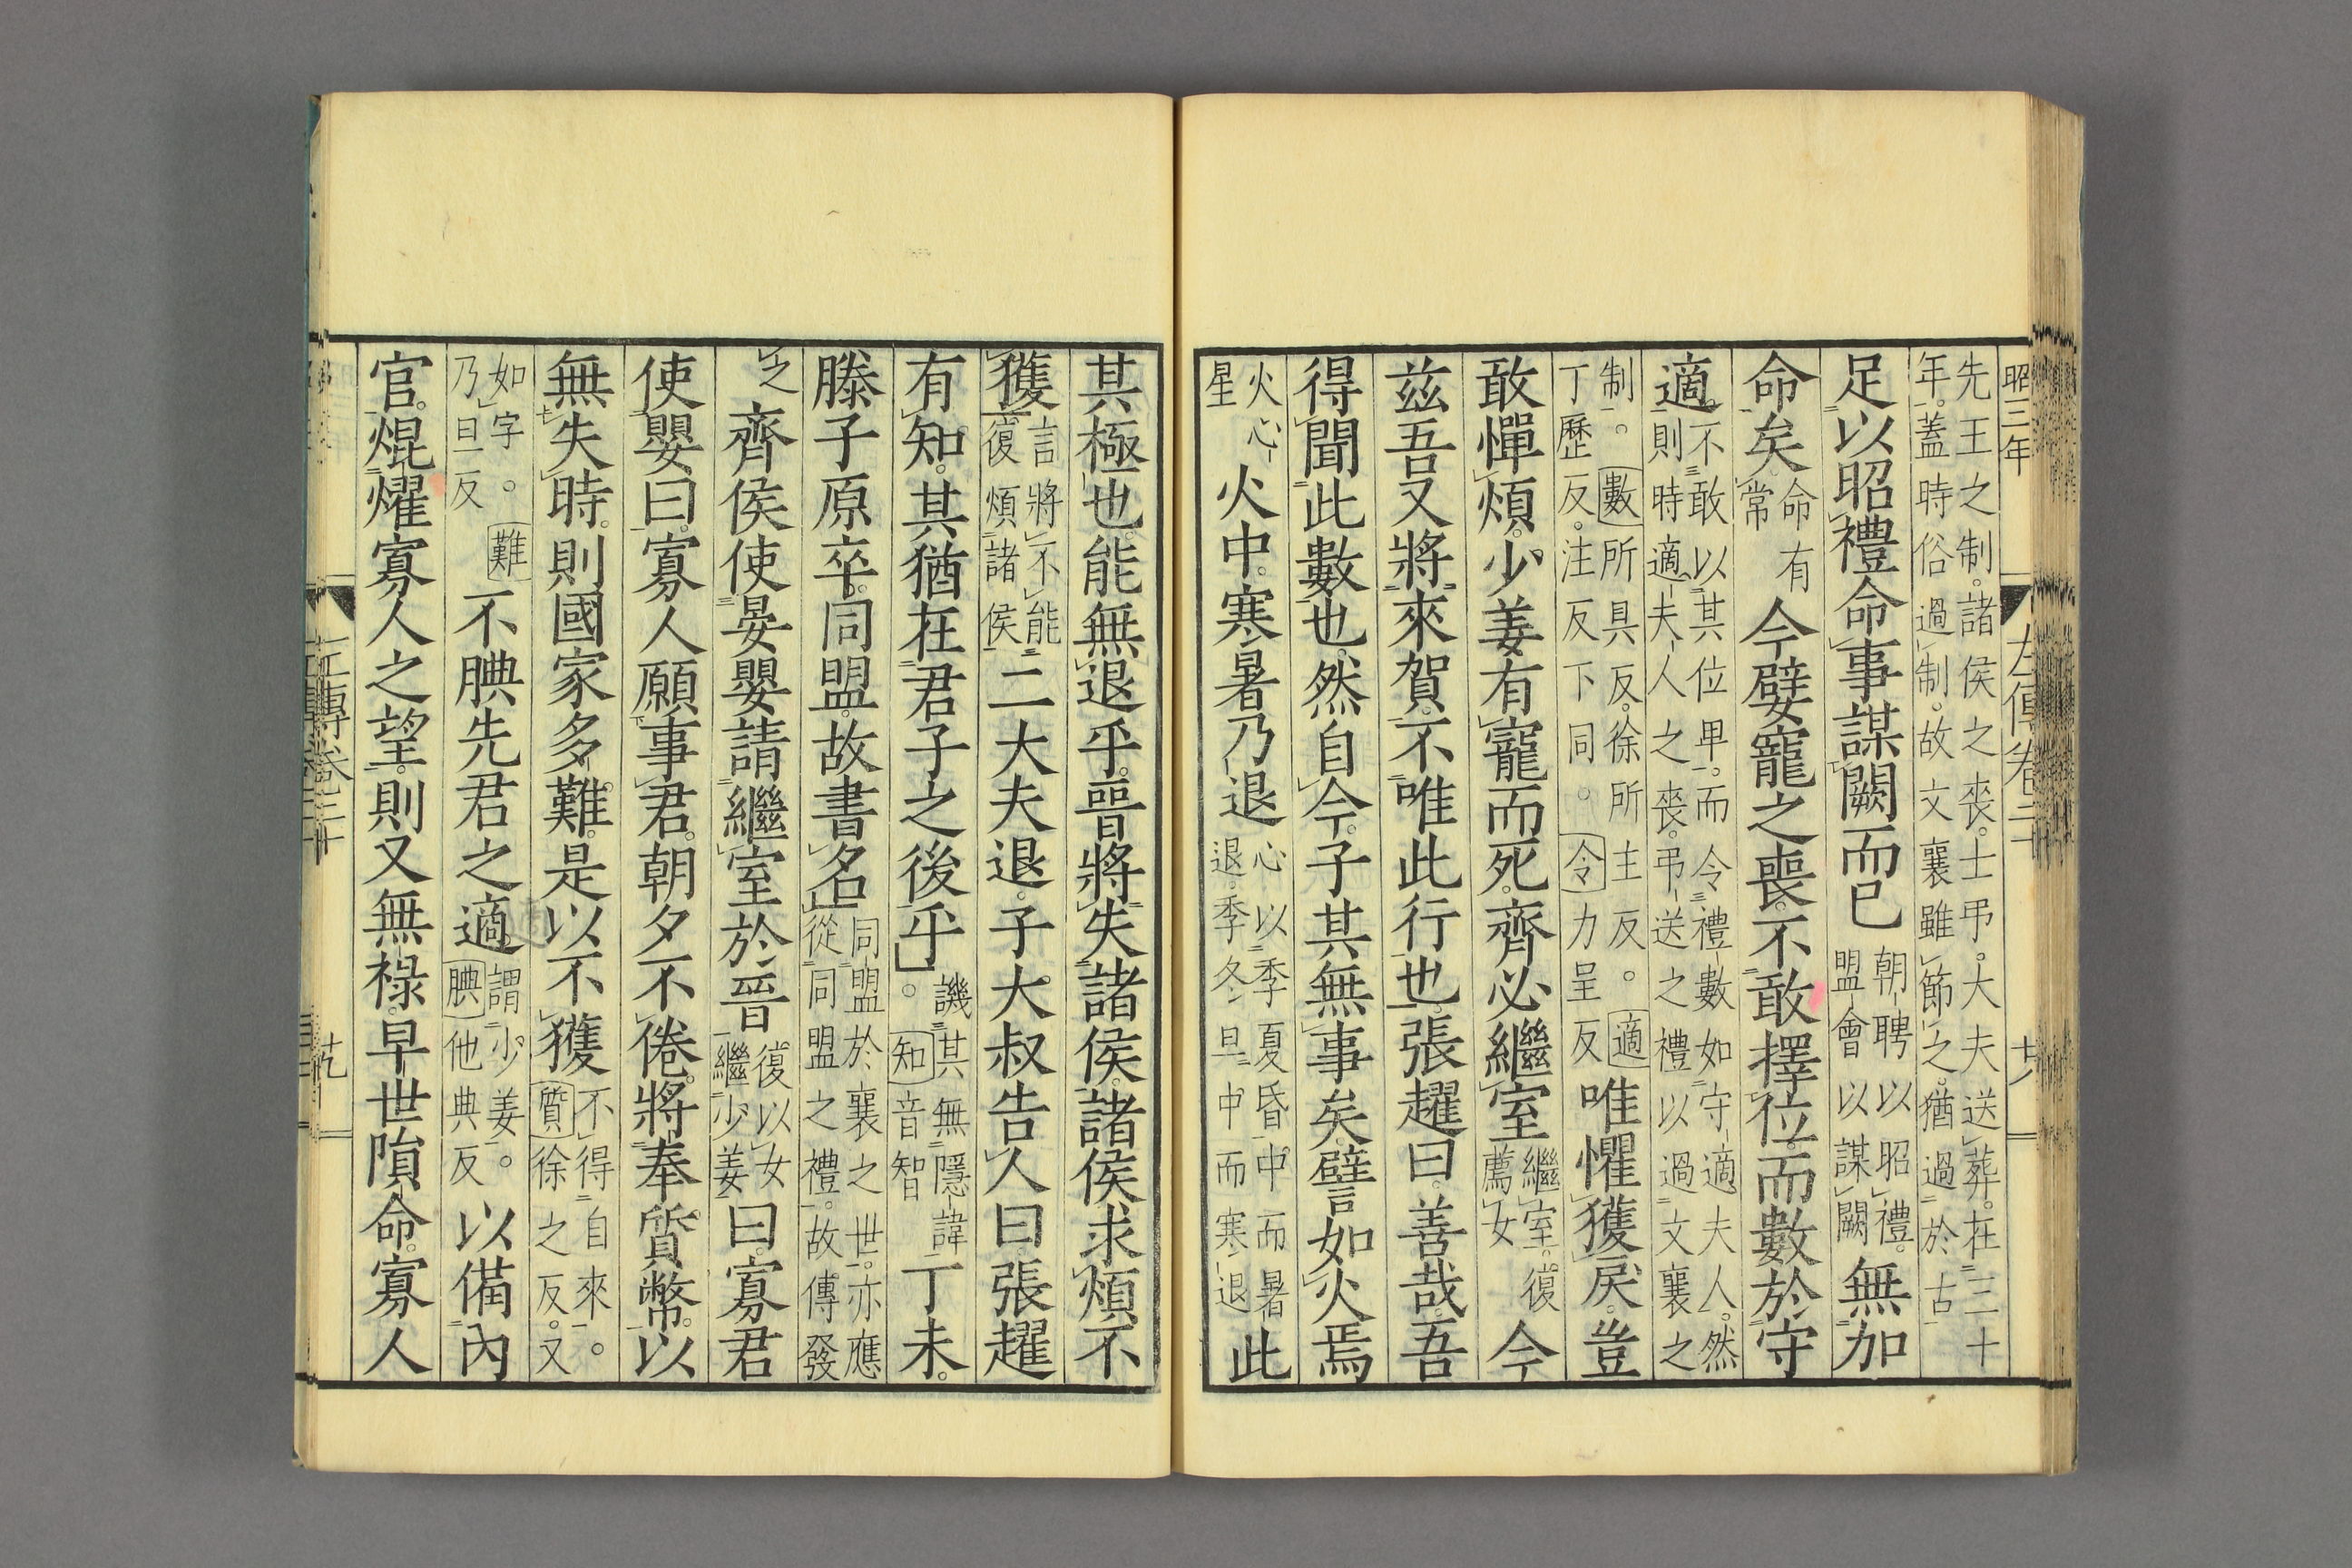 昭三年
左傳卷二十
十八
先王之制。諸侯之喪。士弔。大夫送葬。在三十
年。蓋時俗過制。故文襄雖節之。猶過於古
足以昭禮命事謀闕而已
朝聘以昭禮。
盟會以謀闕
無加
命矣。
命有
常
今嬖寵之喪。不敢擇位。而數於守
適。
不敢以其位卑。而令禮數如守適夫人。然
則時適夫人之喪。弔送之禮以過文襄之
制。數所具反。徐所主反。適
丁歷反。注反下同。令力呈反
唯懼獲戾。豈
敢憚煩。少姜有寵而死。齊必繼室
繼室。復
薦女
今
茲吾又將來賀。不唯此行也。張趯曰。善哉。吾
得聞此數也。然自今。子其無事矣。譬如火焉
火心
星
火中。寒暑乃退
心以季夏昏中而暑
退。季冬旦中而寒退
此
其極也。能無退乎。晉將失諸侯。諸侯求煩不
獲
言將不能
復煩諸侯
二大夫退。子大叔告人曰。張趯
有知。其猶在君子之後乎。
譏其無隱諱
知音智
丁未。
滕子原卒。同盟。故書名
同盟於襄之世。亦應
從同盟之禮。故傳發
之
齊侯使晏嬰請繼室於晉
復以女
繼少姜
曰。寡君
使嬰曰。寡人願事君。朝夕不倦。將奉質幣。以
無失時。則國家多難。是以不獲
不得自來。
質徐之反。又
如字。難
乃旦反
不腆先君之適
謂少姜。
腆他典反
以備內
官。焜燿寡人之望。則又無祿。早世隕命。寡人
左傳卷二十
十九